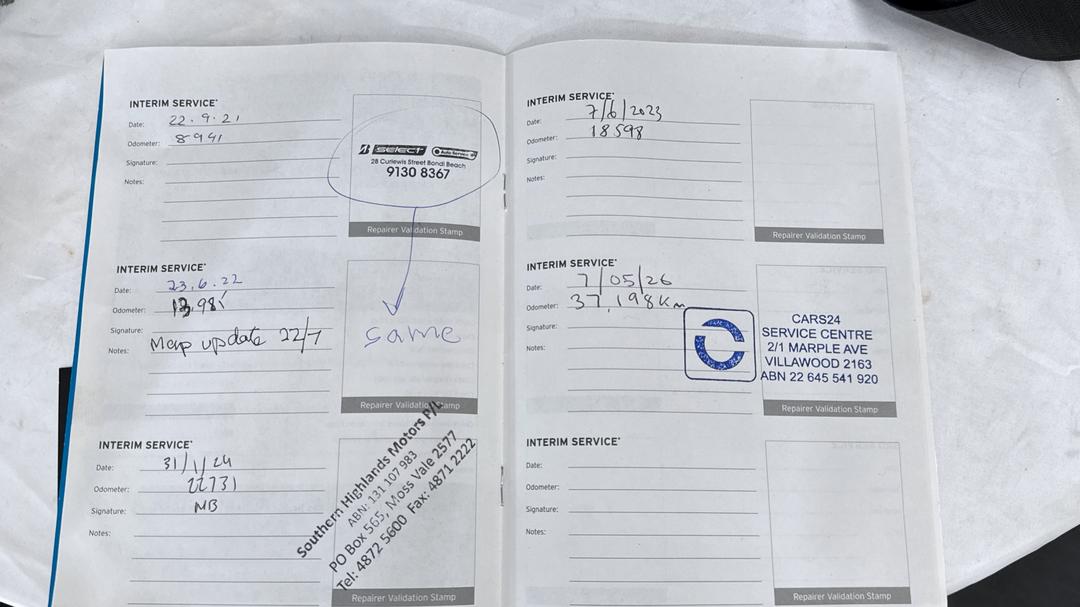 INTERIM SERVICE*
Date: 22.9.21
Odometer: 8941
Signature:
Notes:
SELECT Auto Service
28 Curlewis Street Bondi Beach
9130 8367
Repairer Validation Stamp
INTERIM SERVICE*
Date: 23.6.22
Odometer:
Signature:
Notes: Map update 22/7
same
Repairer Validation Stamp
INTERIM SERVICE*
Date: 31/1/24
Odometer: 22731
Signature: MB
Notes:
Southern Highlands Motors P/L
ABN: 131 107 983
PO Box 565, Moss Vale 2577
Tel: 4872 5600 Fax: 4871 2222
Repairer Validation Stamp
INTERIM SERVICE*
Date: 7/6/2023
Odometer: 18598
Signature:
Notes:
Repairer Validation Stamp
INTERIM SERVICE*
Date: 7/05/26
Odometer: 37,198Km
Signature:
Notes:
CARS24
SERVICE CENTRE
2/1 MARPLE AVE
VILLAWOOD 2163
ABN 22 645 541 920
Repairer Validation Stamp
INTERIM SERVICE*
Date:
Odometer:
Signature:
Notes:
Repairer Validation Stamp